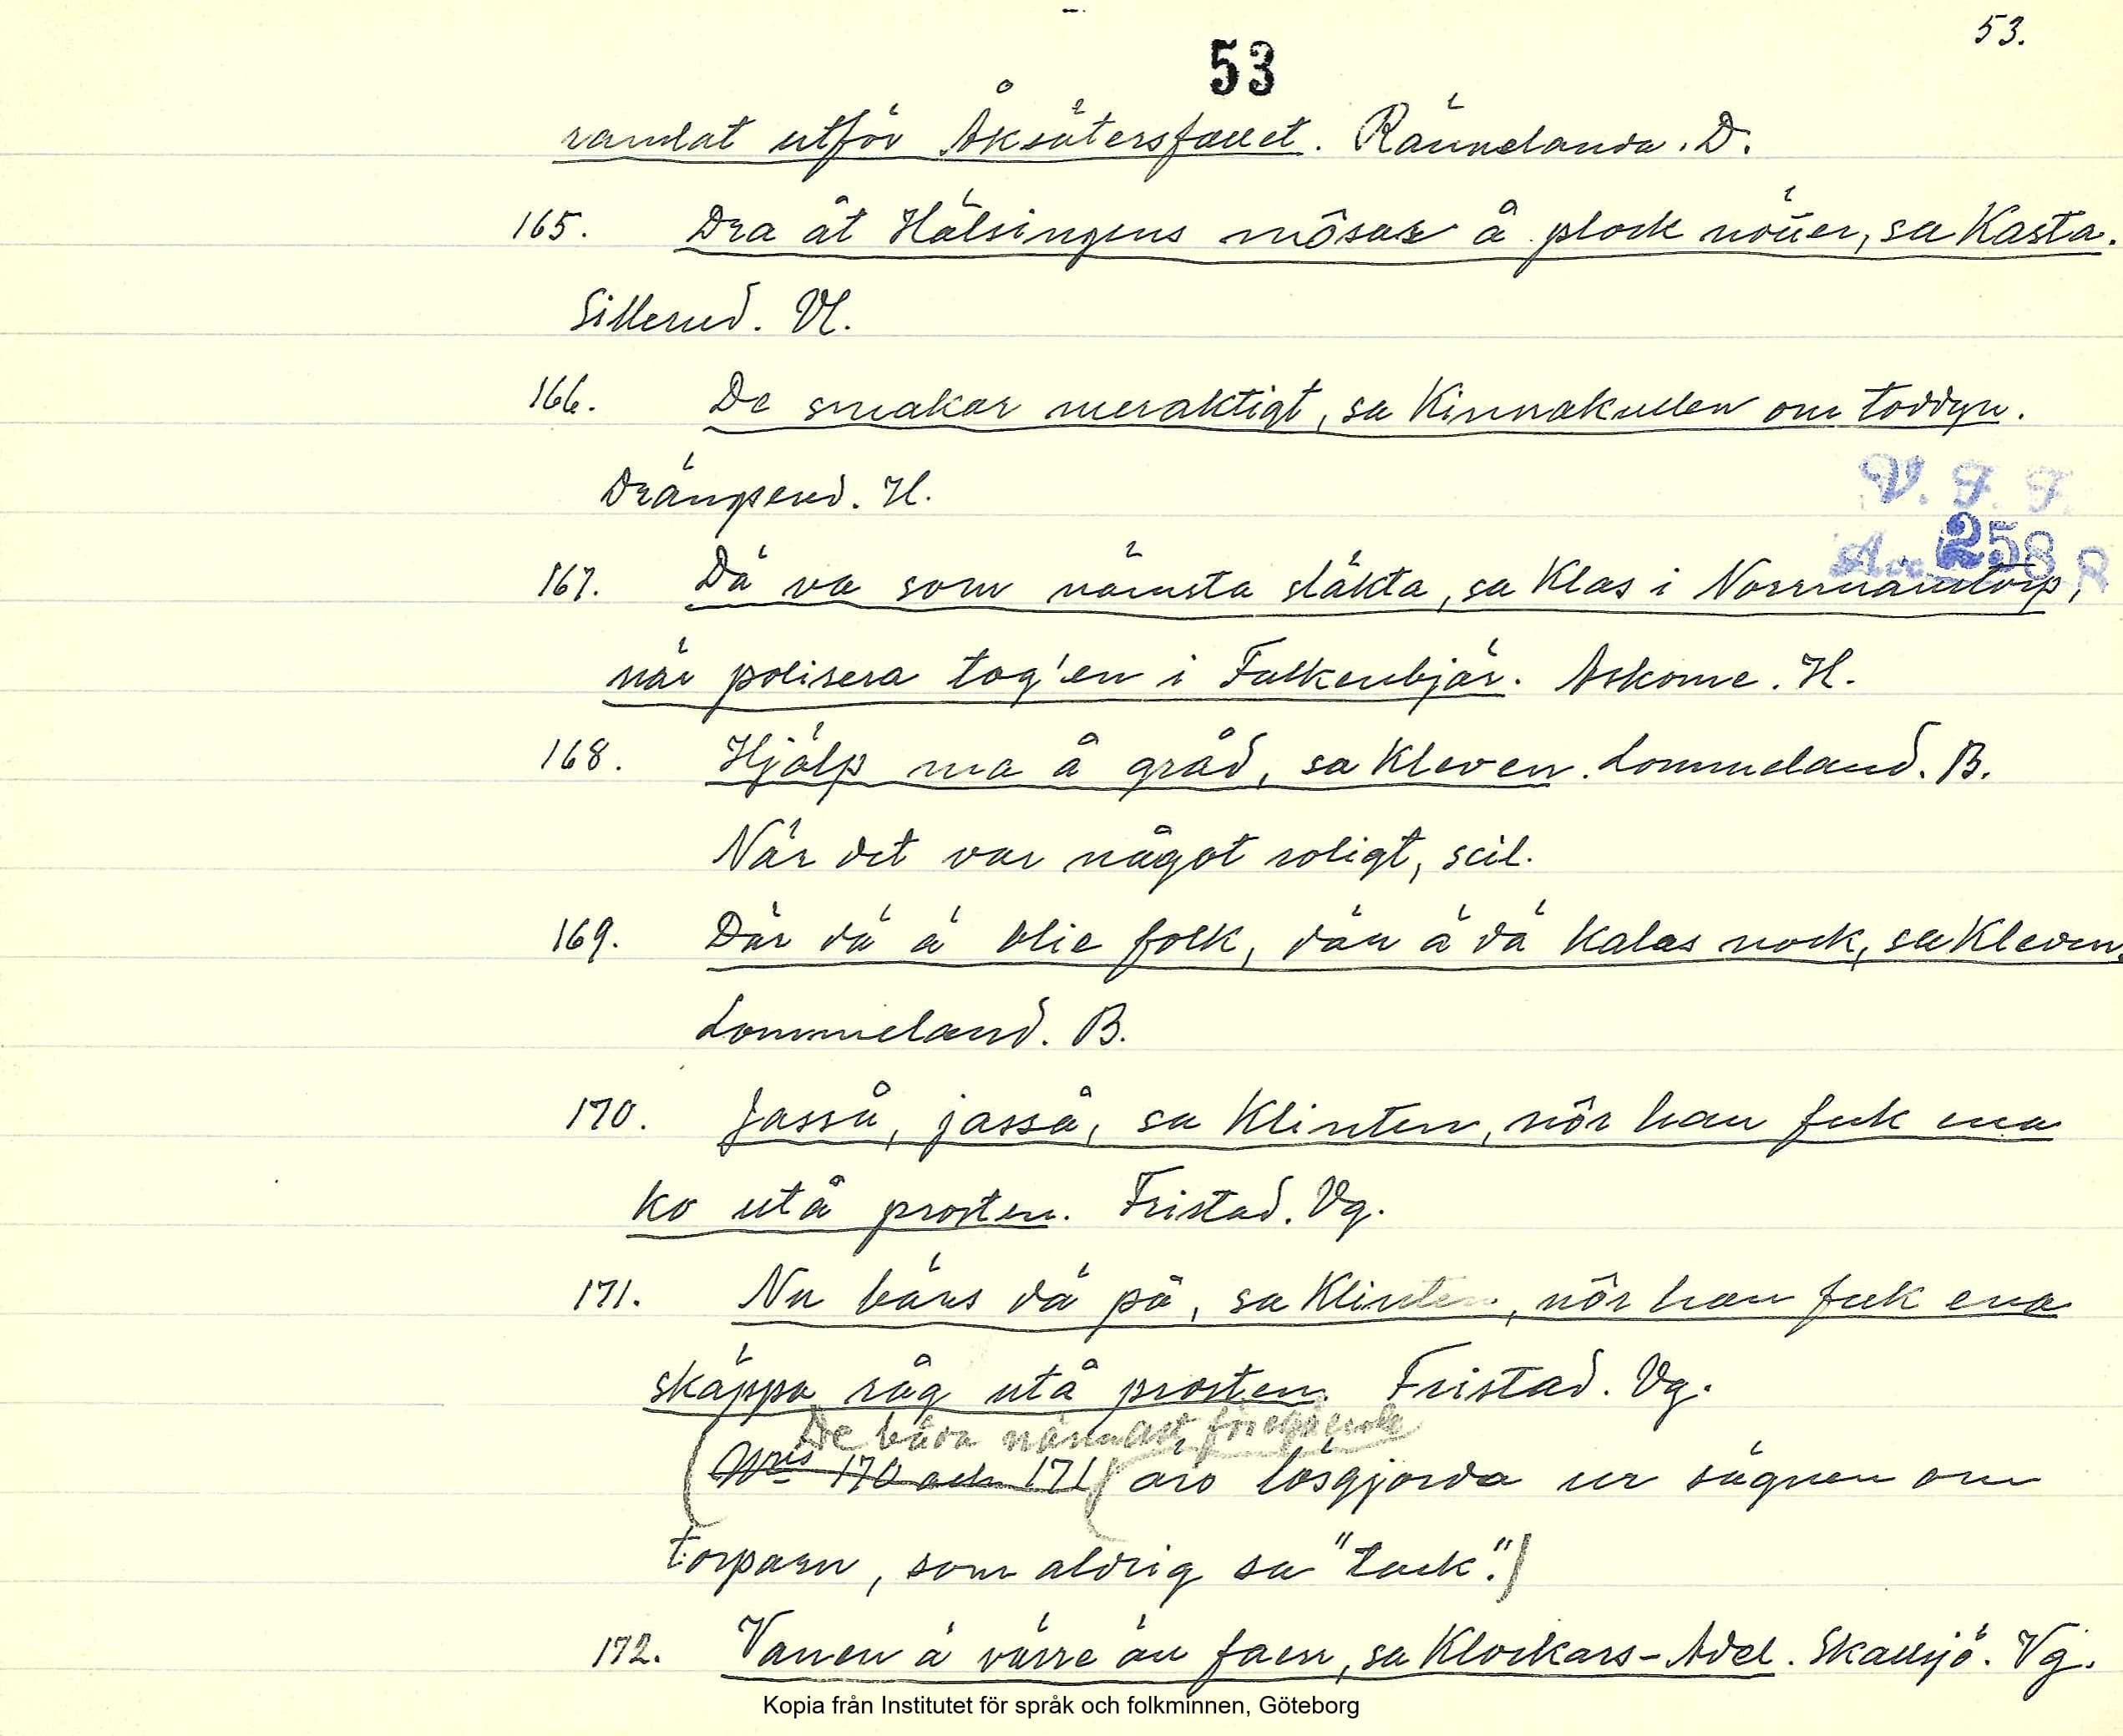 53.
53
ramlat utför Åksätersfallet. Rännelanda. D.
165. Dra åt Hälsingens môsar å plock nöɯer, sa Kasta.
Sillerud. Vl.
166. De smakar meraktigt, sa Kinnakullen om toddyn.
Drängsered. H.
V. F. F.
Acc 258 8
167. Dä va som nämsta släkta, sa Klas i Norrmanstorp,
när polisera tog'en i Falkenbjär. Askome. H.
168. Hjälp ma å gråd, sa Kleven. Lommeland. B.
När det var något roligt, scil.
169. Där dä ä olie folk, dän ä dä kalas nock, sa Kleven.
Lommeland. B.
170. Jasså, jasså, sa Klinten, nôr han fick ena
ko utå prosten. Fristad. Vg.
171. Nu bärs dä på, sa Klinten, nôr han fick ena
skäppa råg utå prosten. Fristad. Vg.
De båda närmast föregående
(Nris 170 och 171) äro lösgjorda ur sägnen om
torparn, som aldrig sa "tack".)
172. Vanen ä värre än faen, sa Klockars-Adel. Skallsjö. Vg.
Kopia från Institutet för språk och folkminnen, Göteborg